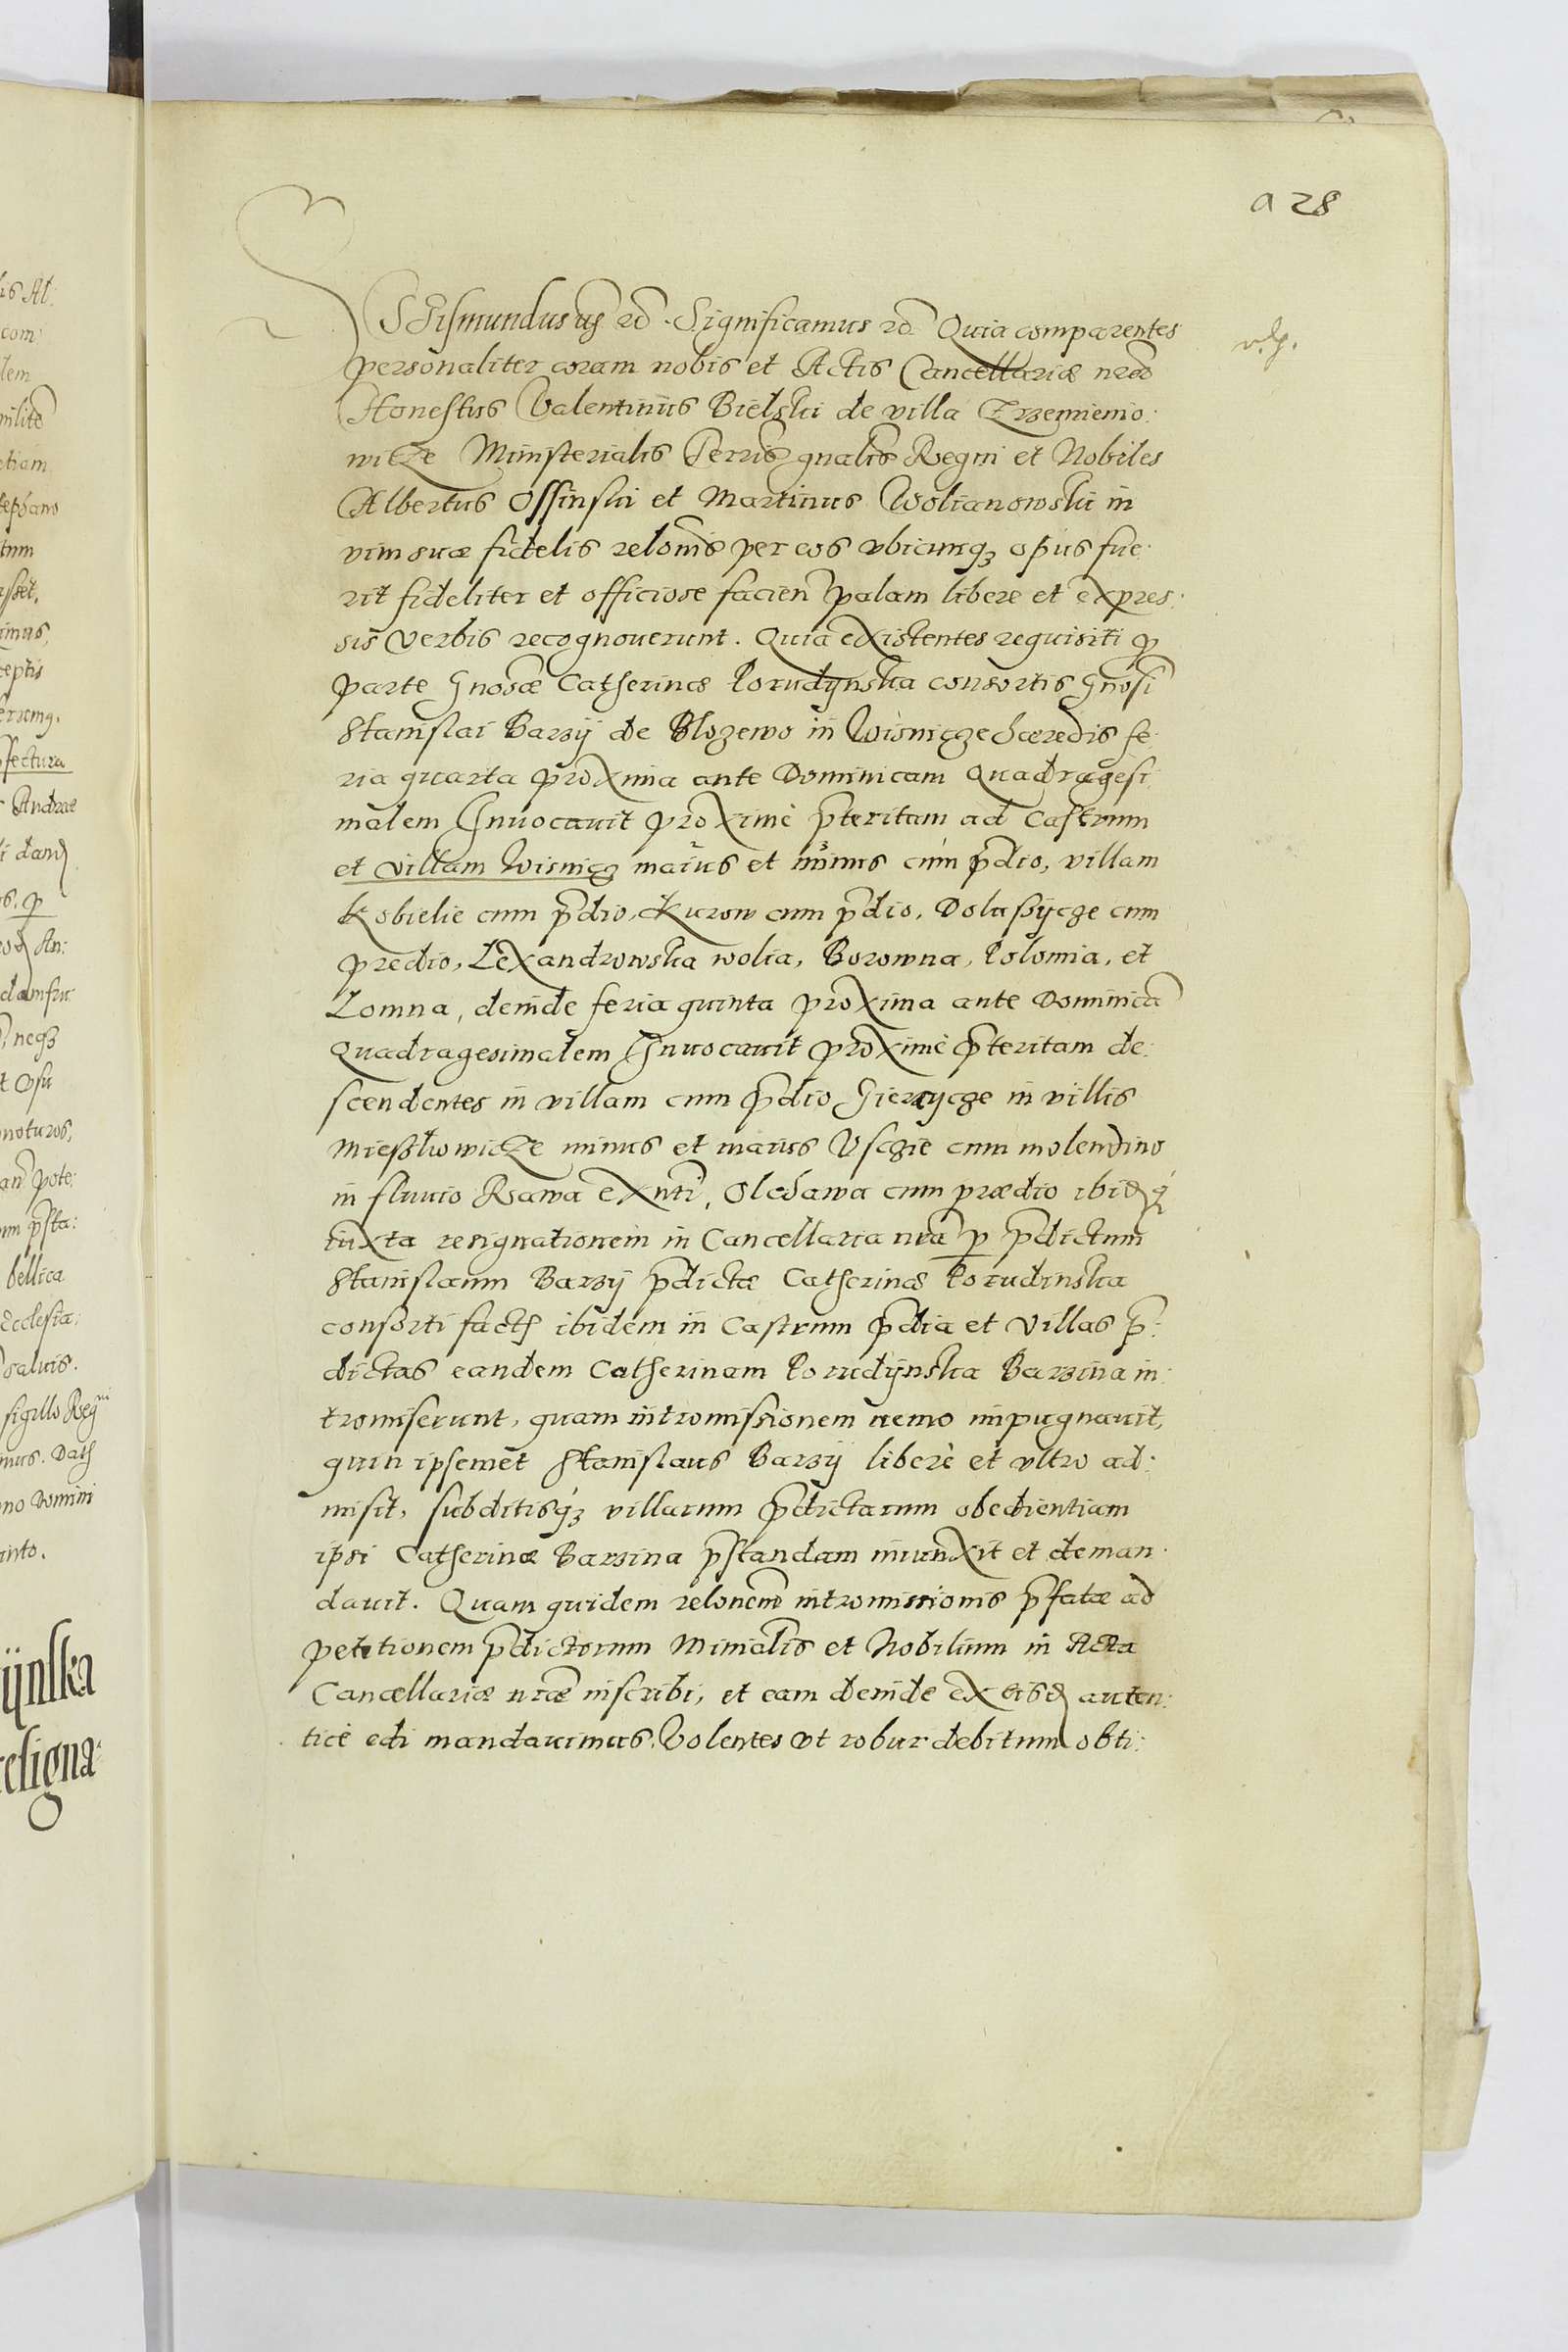 a 28
SGismundus ug &c. Significamus &c Quia comparentes
personaliter coram nobis et Actis Cancellariæ nræ
Honestus Valentinus Bielski de villa Trzemienio:
Ministerialis Terris gnalis Regni et Nobiles
Albertus Ossinski et Martinus Wolianowski in
vim suæ fidelis relonis per eos vbicunqz opus fue:
rit fideliter et officiose facien palam libere et expres:
sis verbis recognoverunt. Quia existentes requisiti p
parte Gnosæ Catherinæ Porudijnska consortis Gnosi
Stanislai Barzij de Blozewo in Wisnicze hæredis fe:
ria quarta proxima ante Dominicam Quadragesi:
malem Invocavit proximè pteritam ad Castrum
et villam Wisnicz maius et minus cum pdio, villam
Kobielie cum pdio, Kurow cum pdio, Dolussycze cum
predio, Lexandrowska wolia, Borowna, Polomia, et
Lomna, deinde feria quinta proxima ante Dominicā
Quadragesimalem Invocavit proximè pteritam de:
scendentes in villam cum pdio Gierczycze in villis
Mieszkowicze minus et maius Vsczie cum molendino
in fluvio Rawa exnti, Olchawa cum prædio ibid
iuxta resignationem in Cancellaria nra p pdictum
Stanislaum Barzij pdictæ Catherinæ Porudinska
consorti fact ibidem in Castrum pdia et villas p:
dictas eandem Catherinam Porudijnska Barzina in:
tromiserunt, quam intromissionem nemo impugnavit,
quin ipsemet Stanislaus Barzij liberè et vltro ad:
misit, subditisqz villarum pdictarum obedientiam
ipsi Catherinæ Barzina pstandam iniunxit et deman:
davit. Quam quidem relonem intromissionis pfatæ ad
petitionem pdictorum Minialis et Nobilium in Acta
Cancellariæ nræ inscribi, et eam deinde ex eisd auten:
ticè edi mandavimus. Volentes vt robur debitum obti: